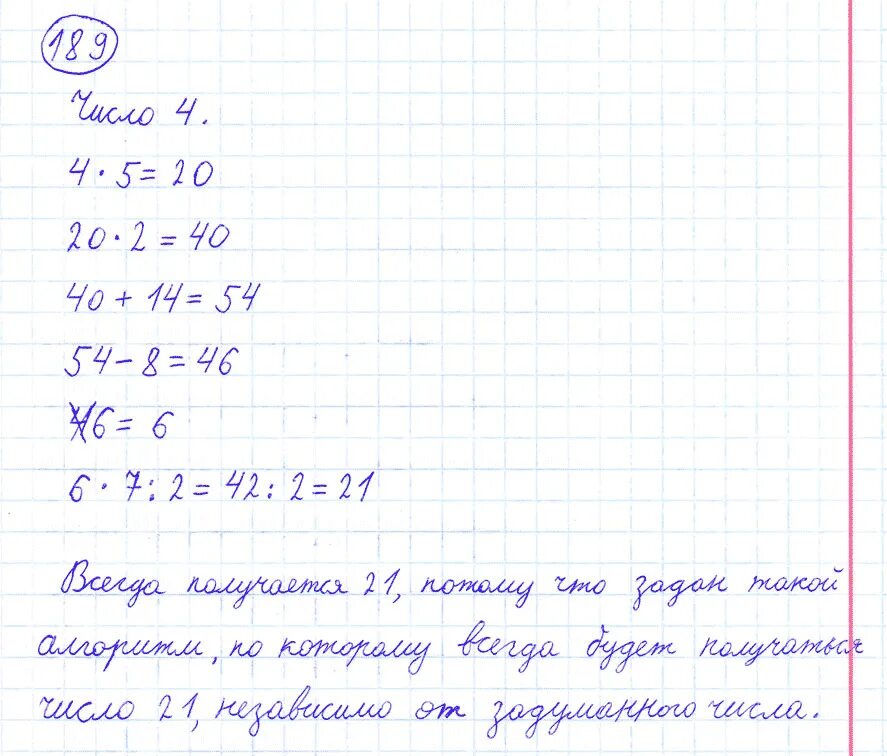 189
Число 4.
4 · 5 = 20
20 · 2 = 40
40 + 14 = 54
54 - 8 = 46
46 = 6
6 · 7 : 2 = 42 : 2 = 21
Всегда получается 21, потому что задан такой
алгоритм, по которому всегда будет получаться
число 21, независимо от задуманного числа.